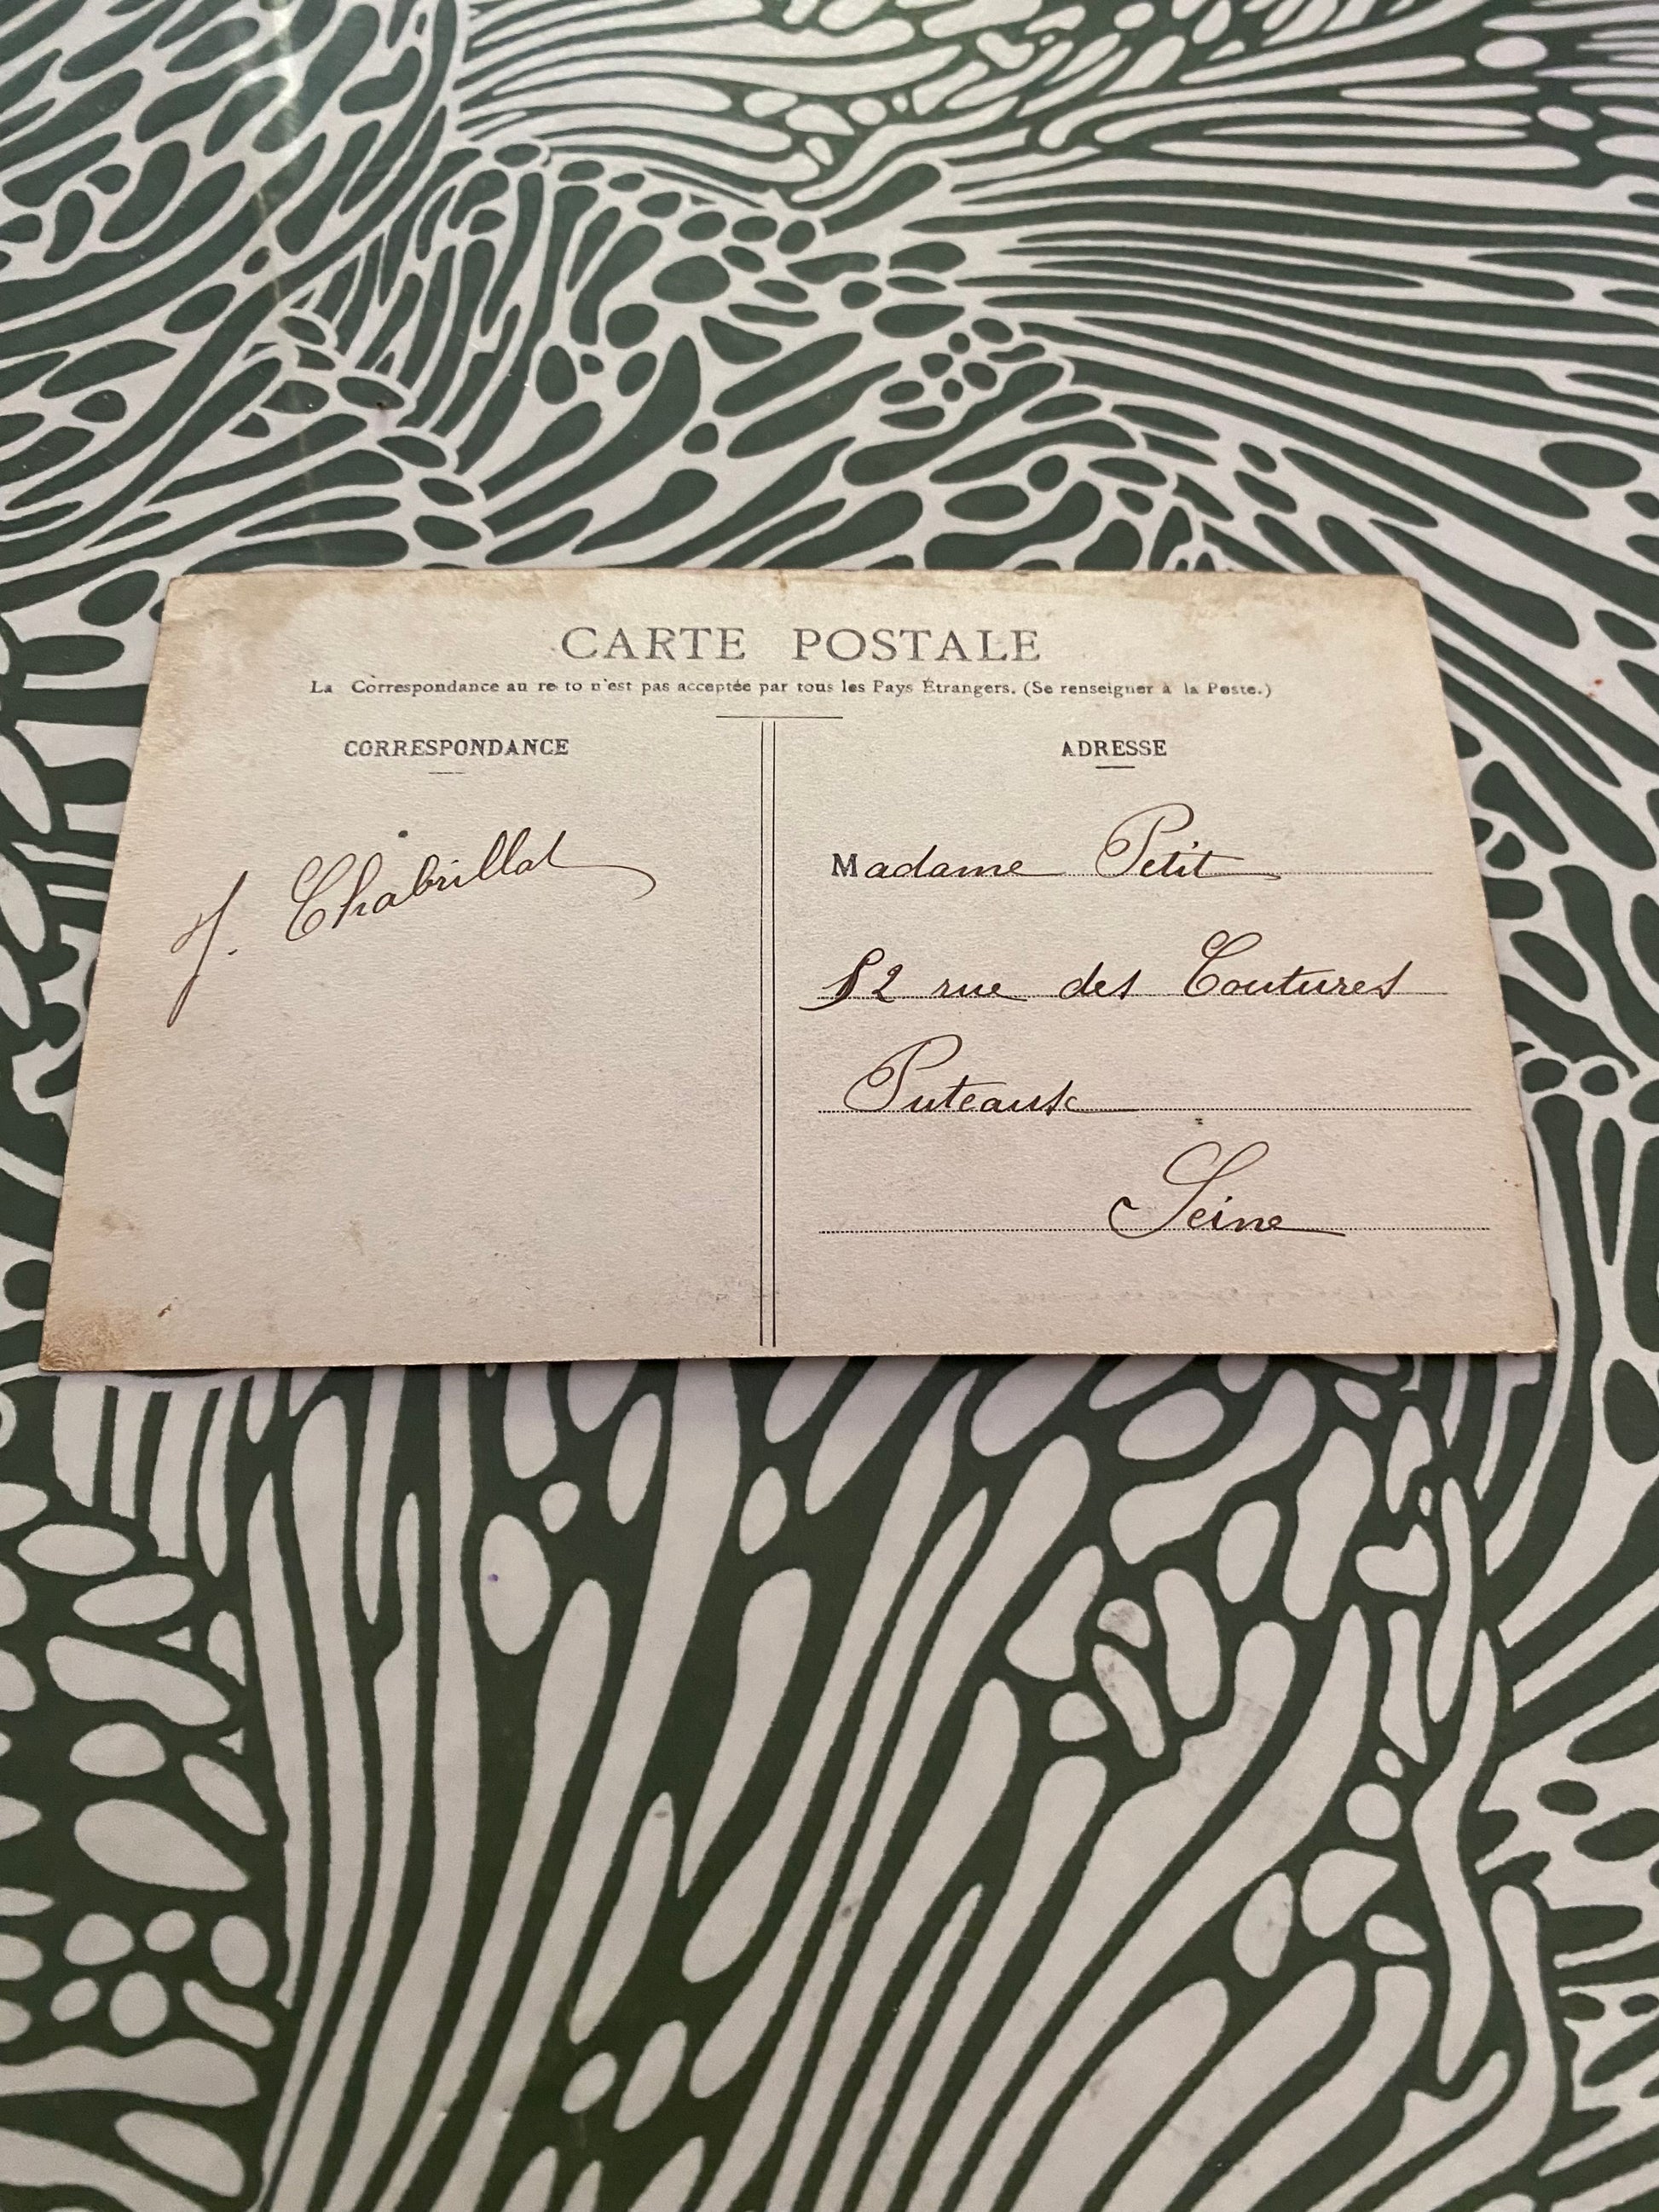 CARTE POSTALE
La Correspondance au recto n'est pas acceptée par tous les Pays Étrangers. (Se renseigner à la Poste.)
CORRESPONDANCE
J. Chabrillat
ADRESSE
Madame Petit
52 rue des Coutures
Puteaux
Seine